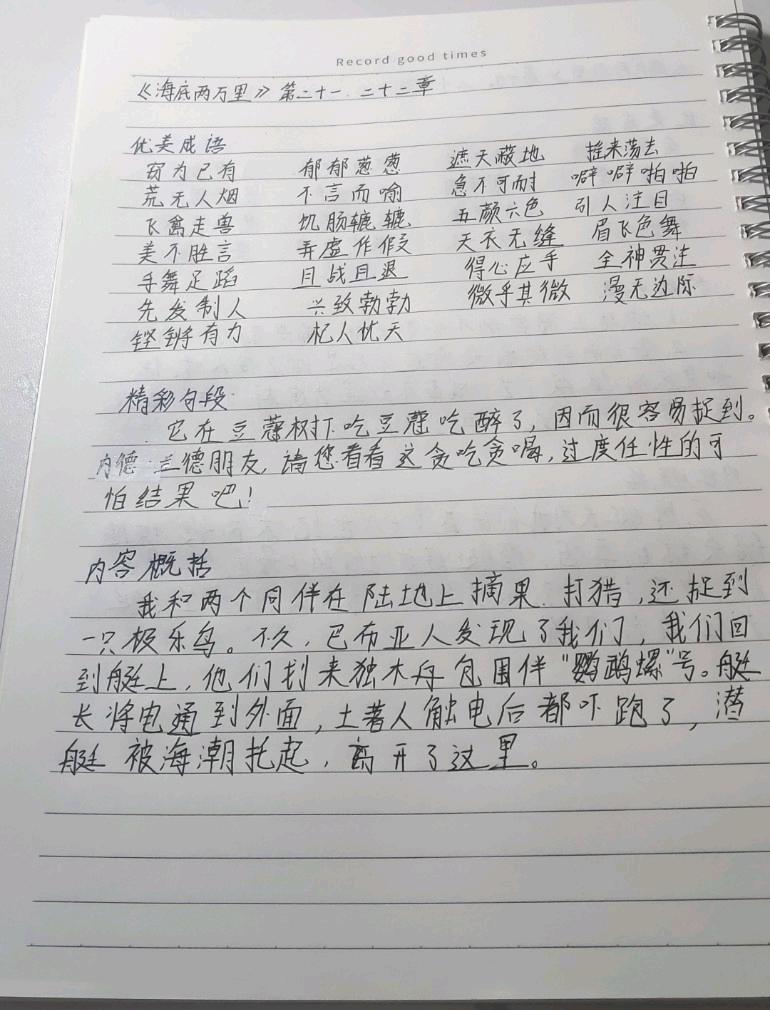 Record good times
《海底两万里》第二十一.二十二章
优美成语
窃为已有 郁郁葱葱 遮天蔽地 摇来荡去
荒无人烟 不言而喻 急不可耐 噼噼啪啪
飞禽走兽 饥肠辘辘 五颜六色 引人注目
美不胜言 弄虚作假 天衣无缝 眉飞色舞
手舞足蹈 且战且退 得心应手 全神贯注
先发制人 兴致勃勃 微乎其微 漫无边际
铿锵有力 杞人忧天
精彩句段
它在豆蔻树下吃豆蔻吃醉了,因而很容易捉到。
内德·兰德朋友,请您看看这贪吃贪喝,过度任性的可
怕结果吧!
内容概括
我和两个同伴在陆地上摘果.打猎,还捉到
一只极乐鸟。不久,巴布亚人发现了我们,我们回
到艇上,他们划来独木舟包围伴“鹦鹉螺”号。艇
长将电通到外面,土著人触电后都吓跑了,潜
艇被海潮托起,离开了这里。